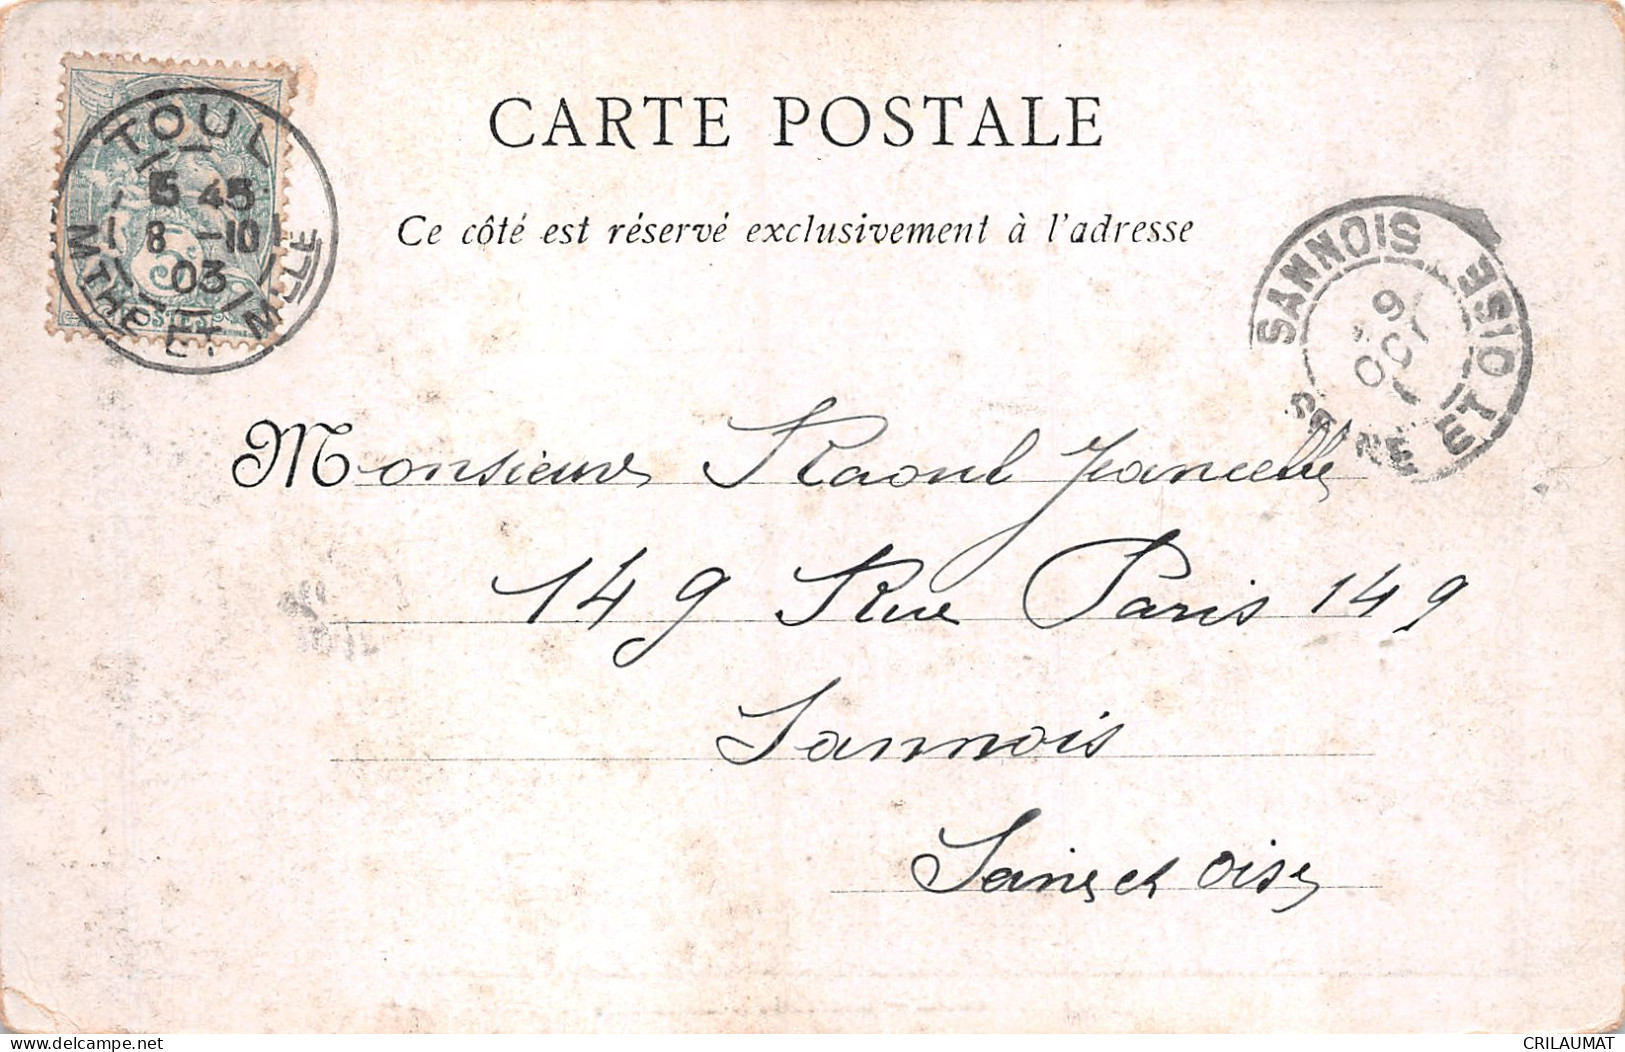 CARTE POSTALE
Ce côté est réservé exclusivement à l'adresse
TOUL
5 45
8 -10
03
MTHE ET MLLE
5
POSTES
SANNOIS
9
OCT
SEINE ET OISE
Monsieur Raoul
149 Rue Paris 149
Sannois
Seine et Oise
www.delcampe.net
CRILAUMAT